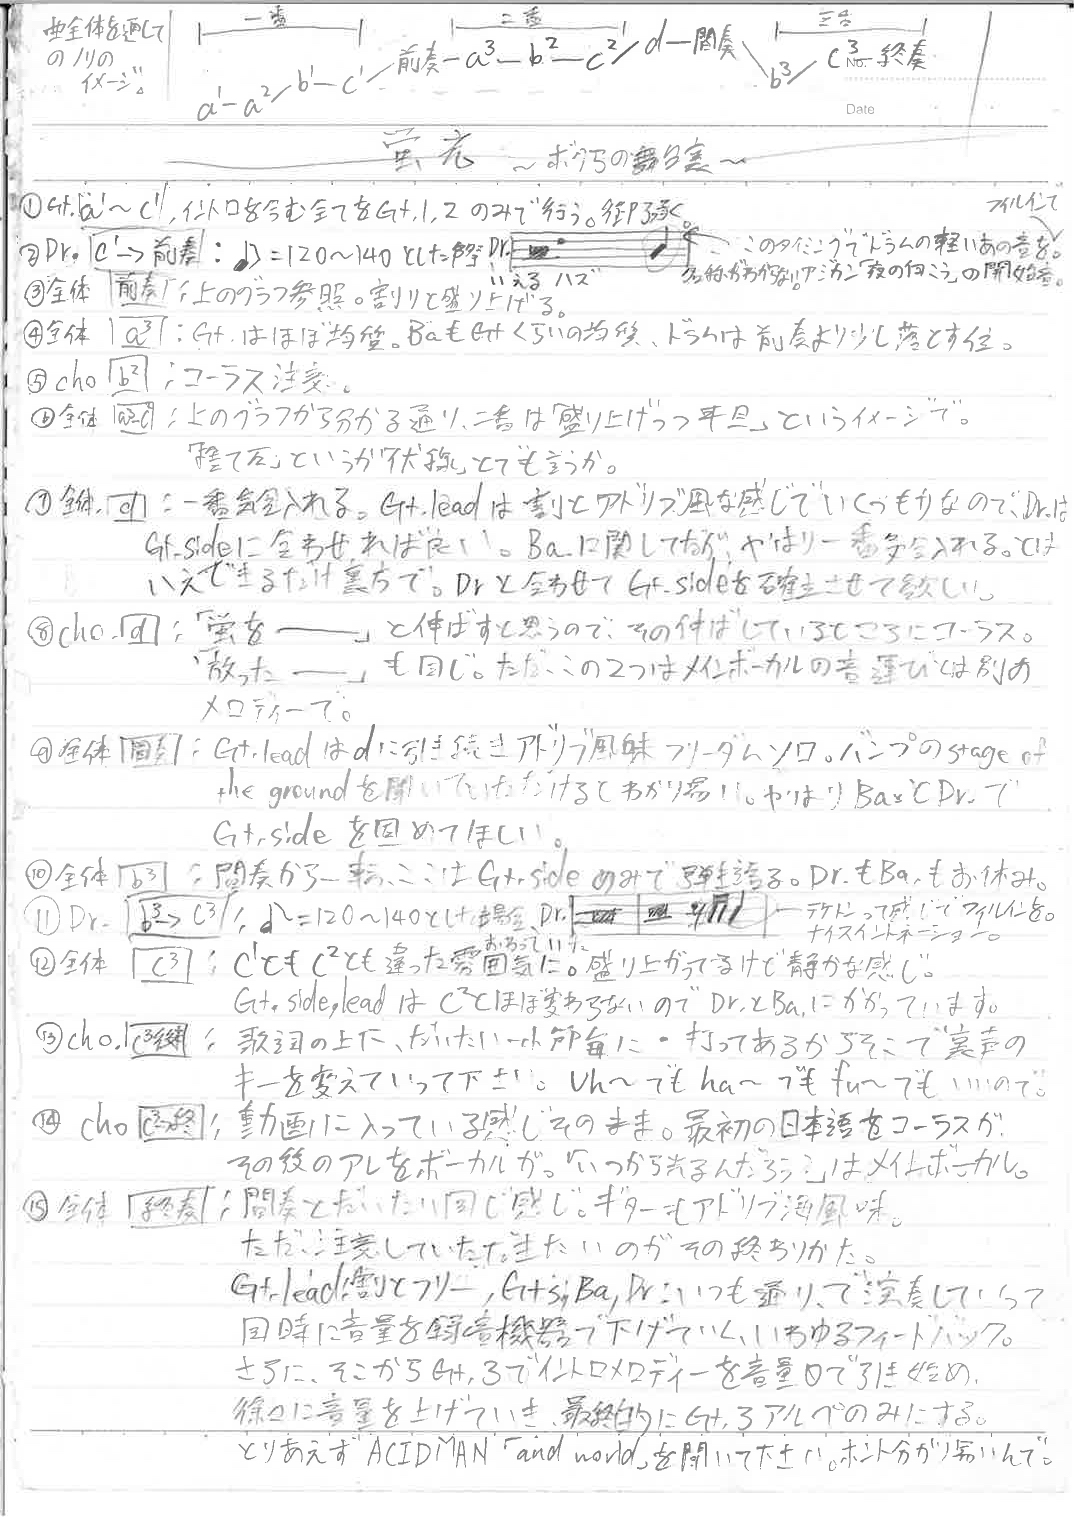 曲全体を通して
のノリの
イメージ。
一番 二番 三番
a¹－a²／b¹－c¹／前奏－a³－b²－c²／d－間奏＼b³／c³－終奏
No.
Date
蛍光 ～ボクらの舞台裏～
①Gt. a¹～c¹, イントロを含む全てをGt.1,2のみで行う。
フィルインて
②Dr. c¹→前奏 : ♩=120～140とした際 Dr. このタイミングでドラムの軽いあの音を。
いえる ハズ 名称がわからない。アジカン「夜の向こう」の開始音。
③全体 前奏 ; 上のグラフ参照。割りと盛り上げる。
④全体 a³ : Gt.はほぼ均質。BaもGtくらいの均質、ドラムは前奏より少し落とす位。
⑤cho b² ; コーラス注意。
⑥全体 ; 上のグラフから分かる通り、二番は「盛り上げつつ平坦」というイメージで。
「捨て石」というか「伏線」とでも言うか。
⑦全体. d : 一番気合入れる。Gt.leadは割とアドリブ風な感じでいくつもりなので、Dr.は
Gt.sideに合わせれば良い。Ba.に関してだが、やはり一番気合入れる。とは
いえできるだけ裏方で。Drと合わせてGt.sideを確立させて欲しい。
⑧cho. d ; 「蛍を――」と伸ばすと思うので、その伸ばしているところにコーラス。
「放った――」も同じ。ただ、この2つはメインボーカルの音運びとは別の
メロディーで。
⑨全体 間奏 ; Gt.leadはdに引き続きアドリブ風味フリーダムソロ。バンプのstage of
the groundを聞いていただけるとわかり易い。やはりBa.とDr.で
Gt.sideを固めてほしい。
⑩全体 b³ ; 間奏から一転、ここはGt.sideのみで弾き語る。Dr.もBa.もお休み。
⑪Dr. b³→c³ ; ♩=120～140とした場合、Dr. テケドンって感じでフィルインを。
ナイスイントネーション。
⑫全体 c³ ; c¹ともc²とも違った雰囲気に。盛り上がってるけど静かな感じ。
Gt.side,leadはc²とほぼ変わらないのでDr.とBa.にかかっています。
⑬cho. c³後 ; 歌詞の上に、だいたい一小節毎に・打ってあるからそこで裏声の
キーを変えていって下さい。Uh～でもha～でもfu～でもいいので。
⑭cho c³→終 ; 動画1に入っている感じそのまま。最初の日本語をコーラスが、
その後のアレをボーカルが。「いつから光るんだろう?」はメインボーカル。
⑮全体 終奏 ; 間奏とだいたい同じ感じ。ギターもアドリブ風味。
ただ、注意していただきたいのがその終わりかた。
Gt.lead:割りとフリー, Gt.si, Ba, Dr:いつも通り、で演奏していって
同時に音量を録音機器で下げていく、いわゆるフィードバック。
さらに、そこからGt.3でイントロメロディーを音量0で引き始め、
徐々に音量を上げていき、最終的にGt.3アルペのみにする。
とりあえずACIDMAN「and world」を聞いて下さい。ホント分かり易いんで。